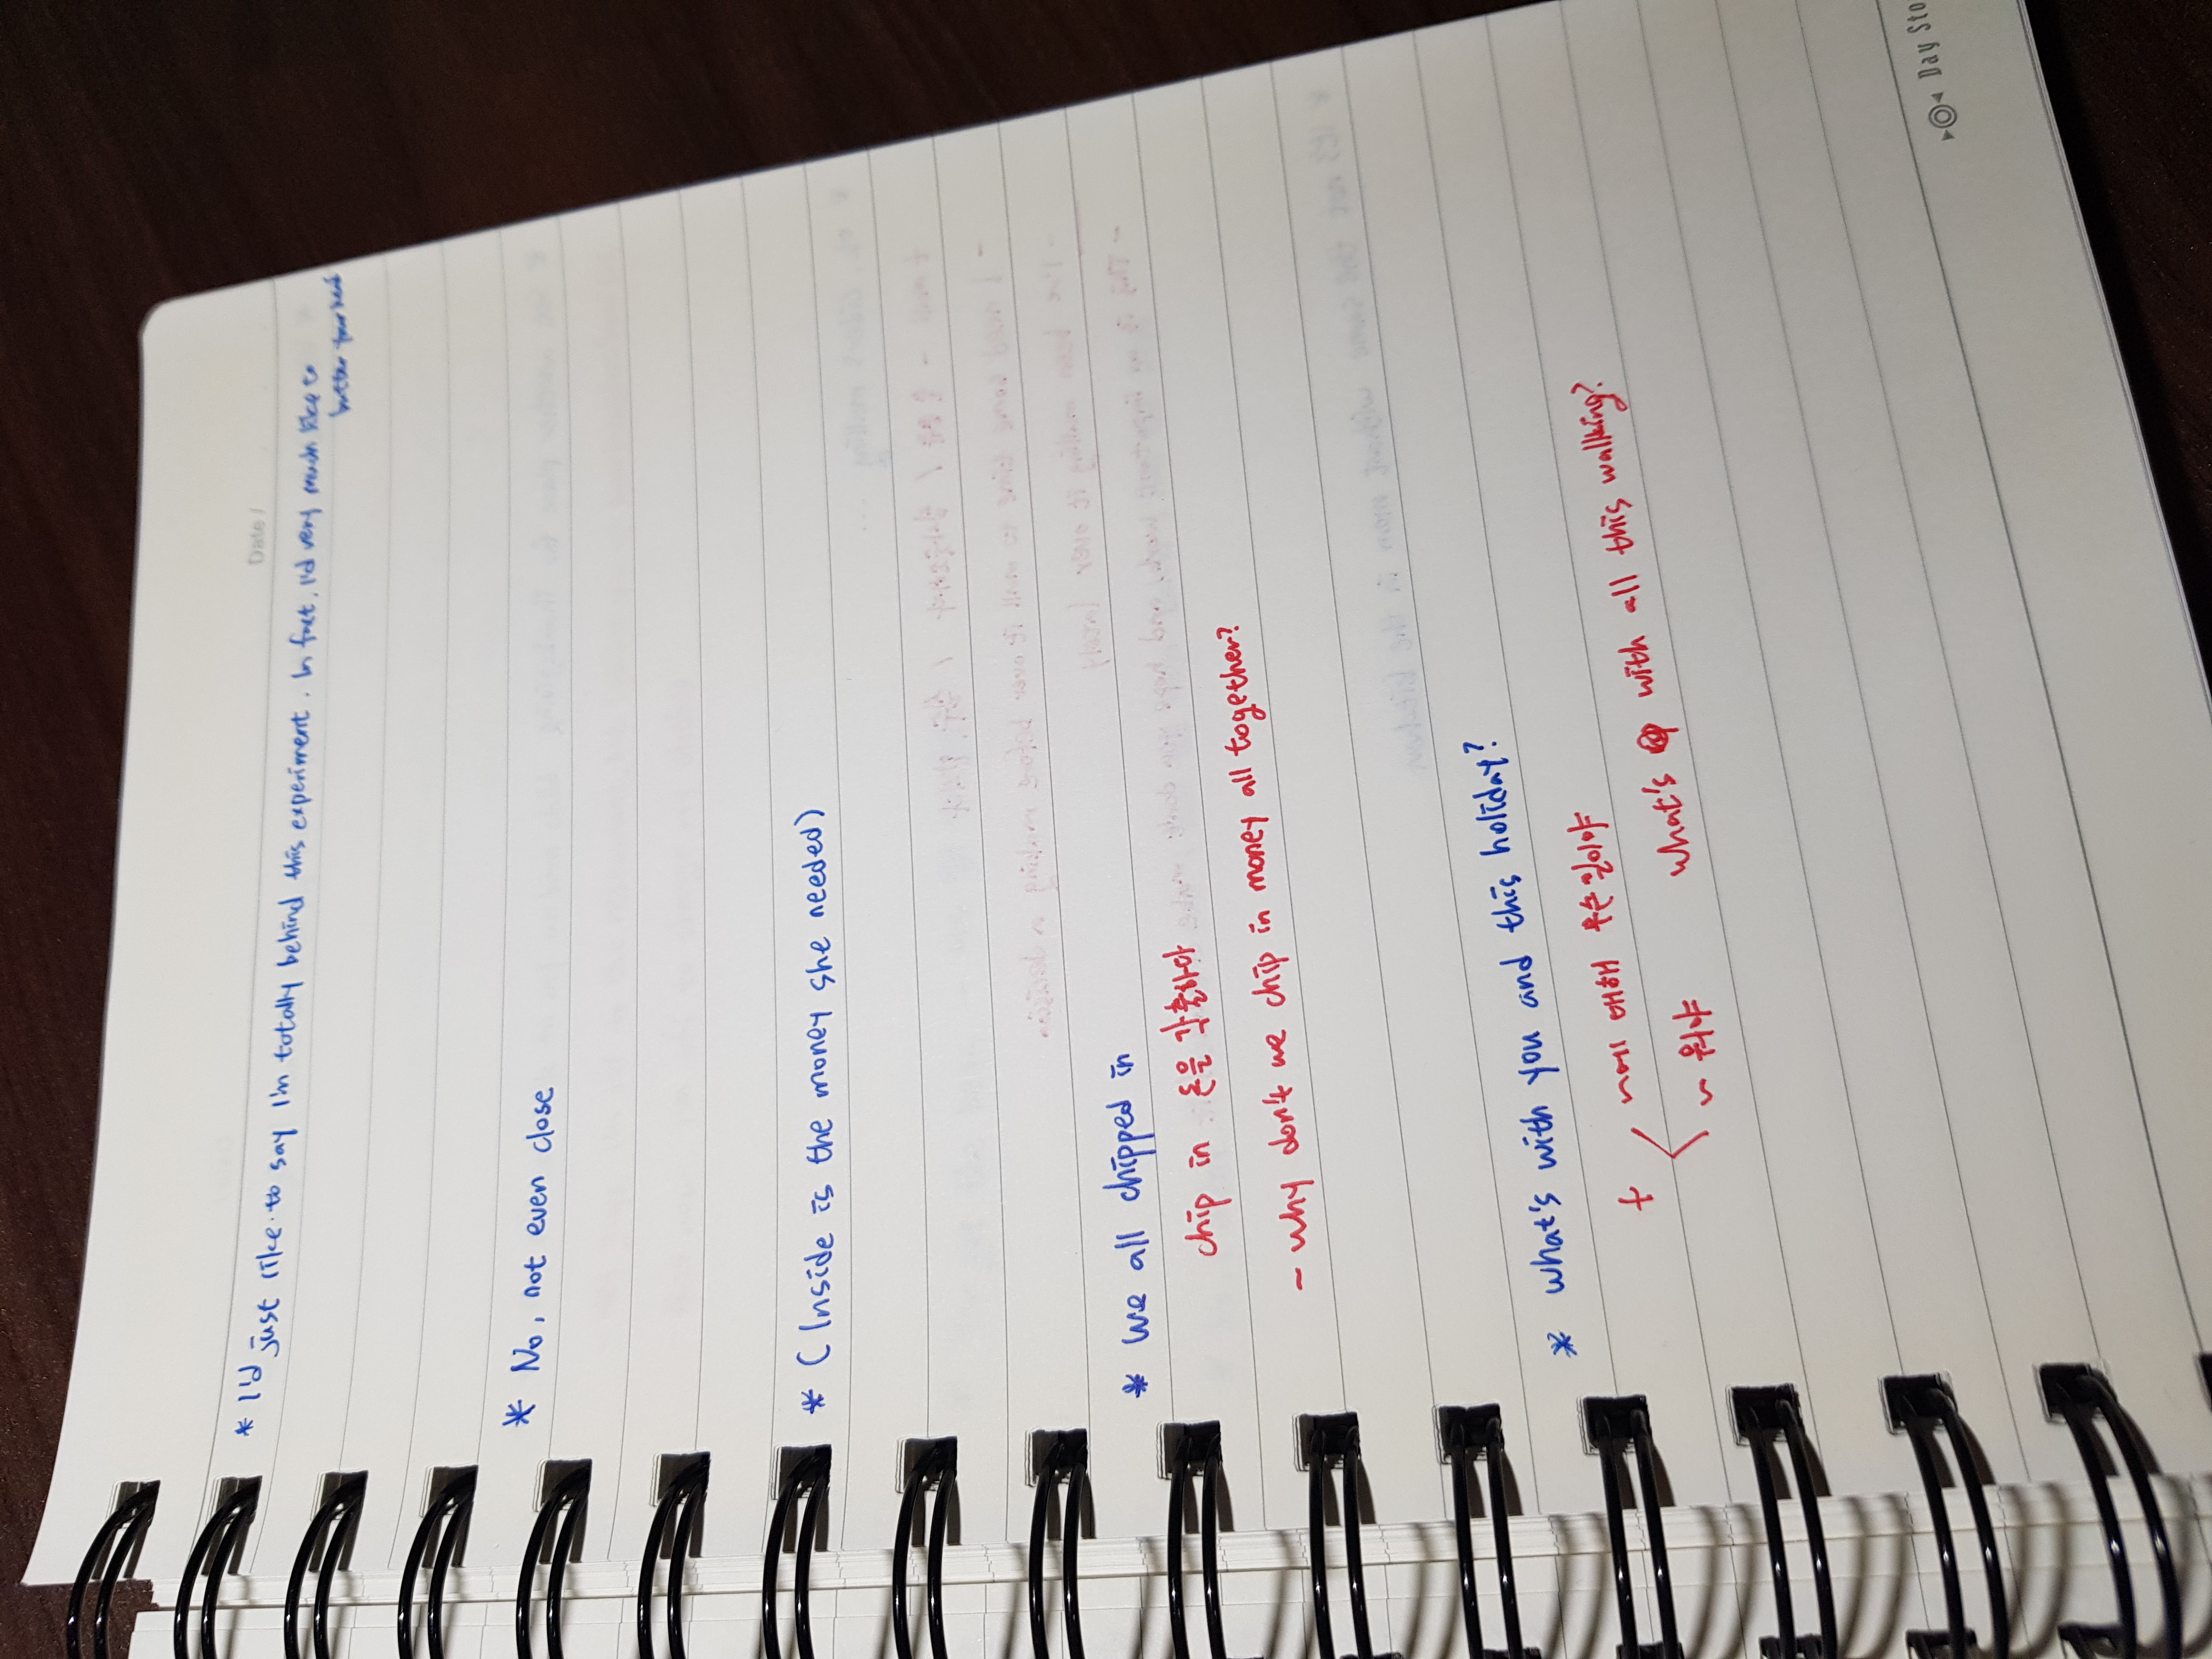 Date /
* I'd just like to say I'm totally behind this experiment. In fact, I'd very much like to
butter your head
* No, not even close
* (Inside is the money she needed)
* we all chipped in
chip in : 돈을 각출하야
~ why don't we chip in money all together?
* what's with you and this holiday?
+ < ~에 대해 무슨일이야
~ 뭐야 what's with all this walking?
Day Sto